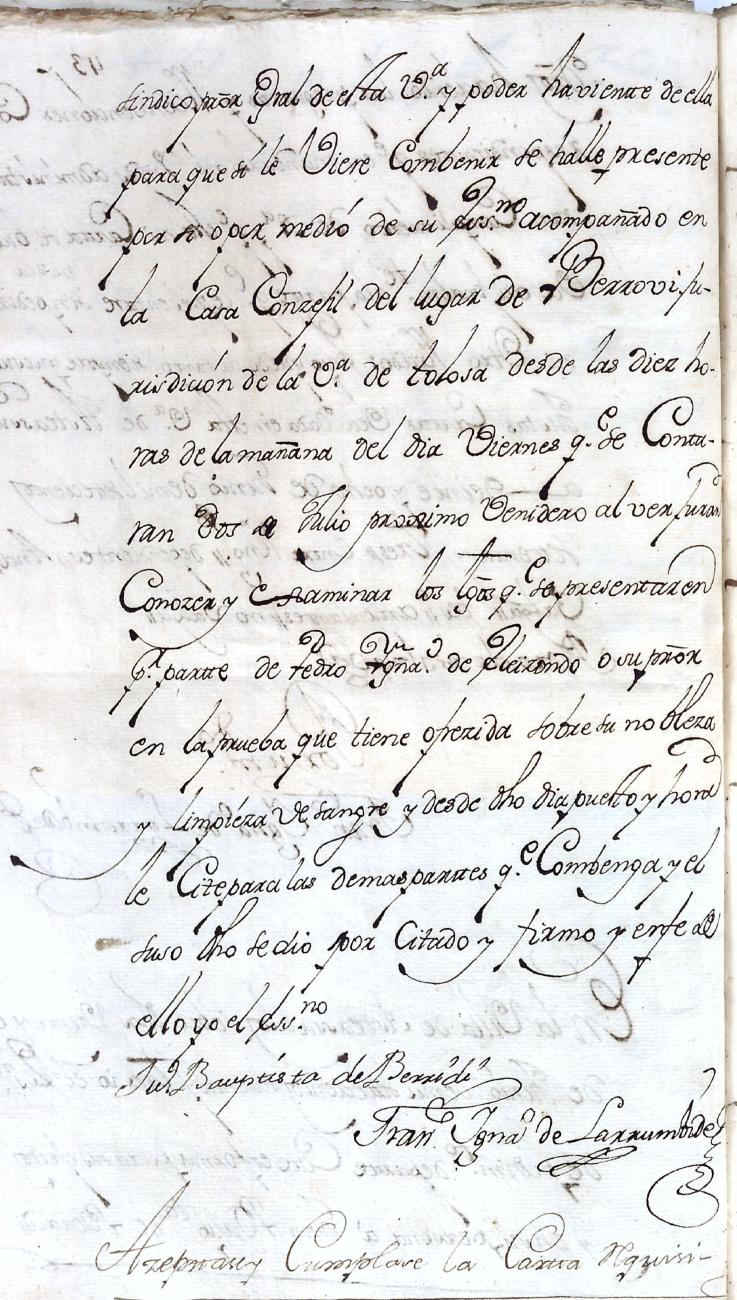 síndico prõr Gral de esta V.ª y poder haviente de ella
para que si le Viere Combenir se halle presente
por si o por medió de su Ess.no acompañado en
la Casa Conzejil del lugar de Berrovi ju-
risdición de la V.ª de tolosa desde las diez ho-
ras de la mañana del dia Viernes q.e se Conta-
ran Dos de Julio proximo Venidero al ver jurar
Conozer y examinar los tgõs q.e se presentaren
p.r partte de Pedro Ygña.º de Eleizondo o su prõr
en la prueba que tiene ofrezida sobre su nobleza
y limpieza de sangre y desde dho dia puesto y hora
le Cite para las demas parttes q.e Combenga y el
suso dho se dio por Citado y firmo y en fe de
ello yo el Ess.no
Juº Bauptista de Berridi
Franº Ygnaº de Larrumbide
Azeptase y Cumplase la Carta Rquisi-